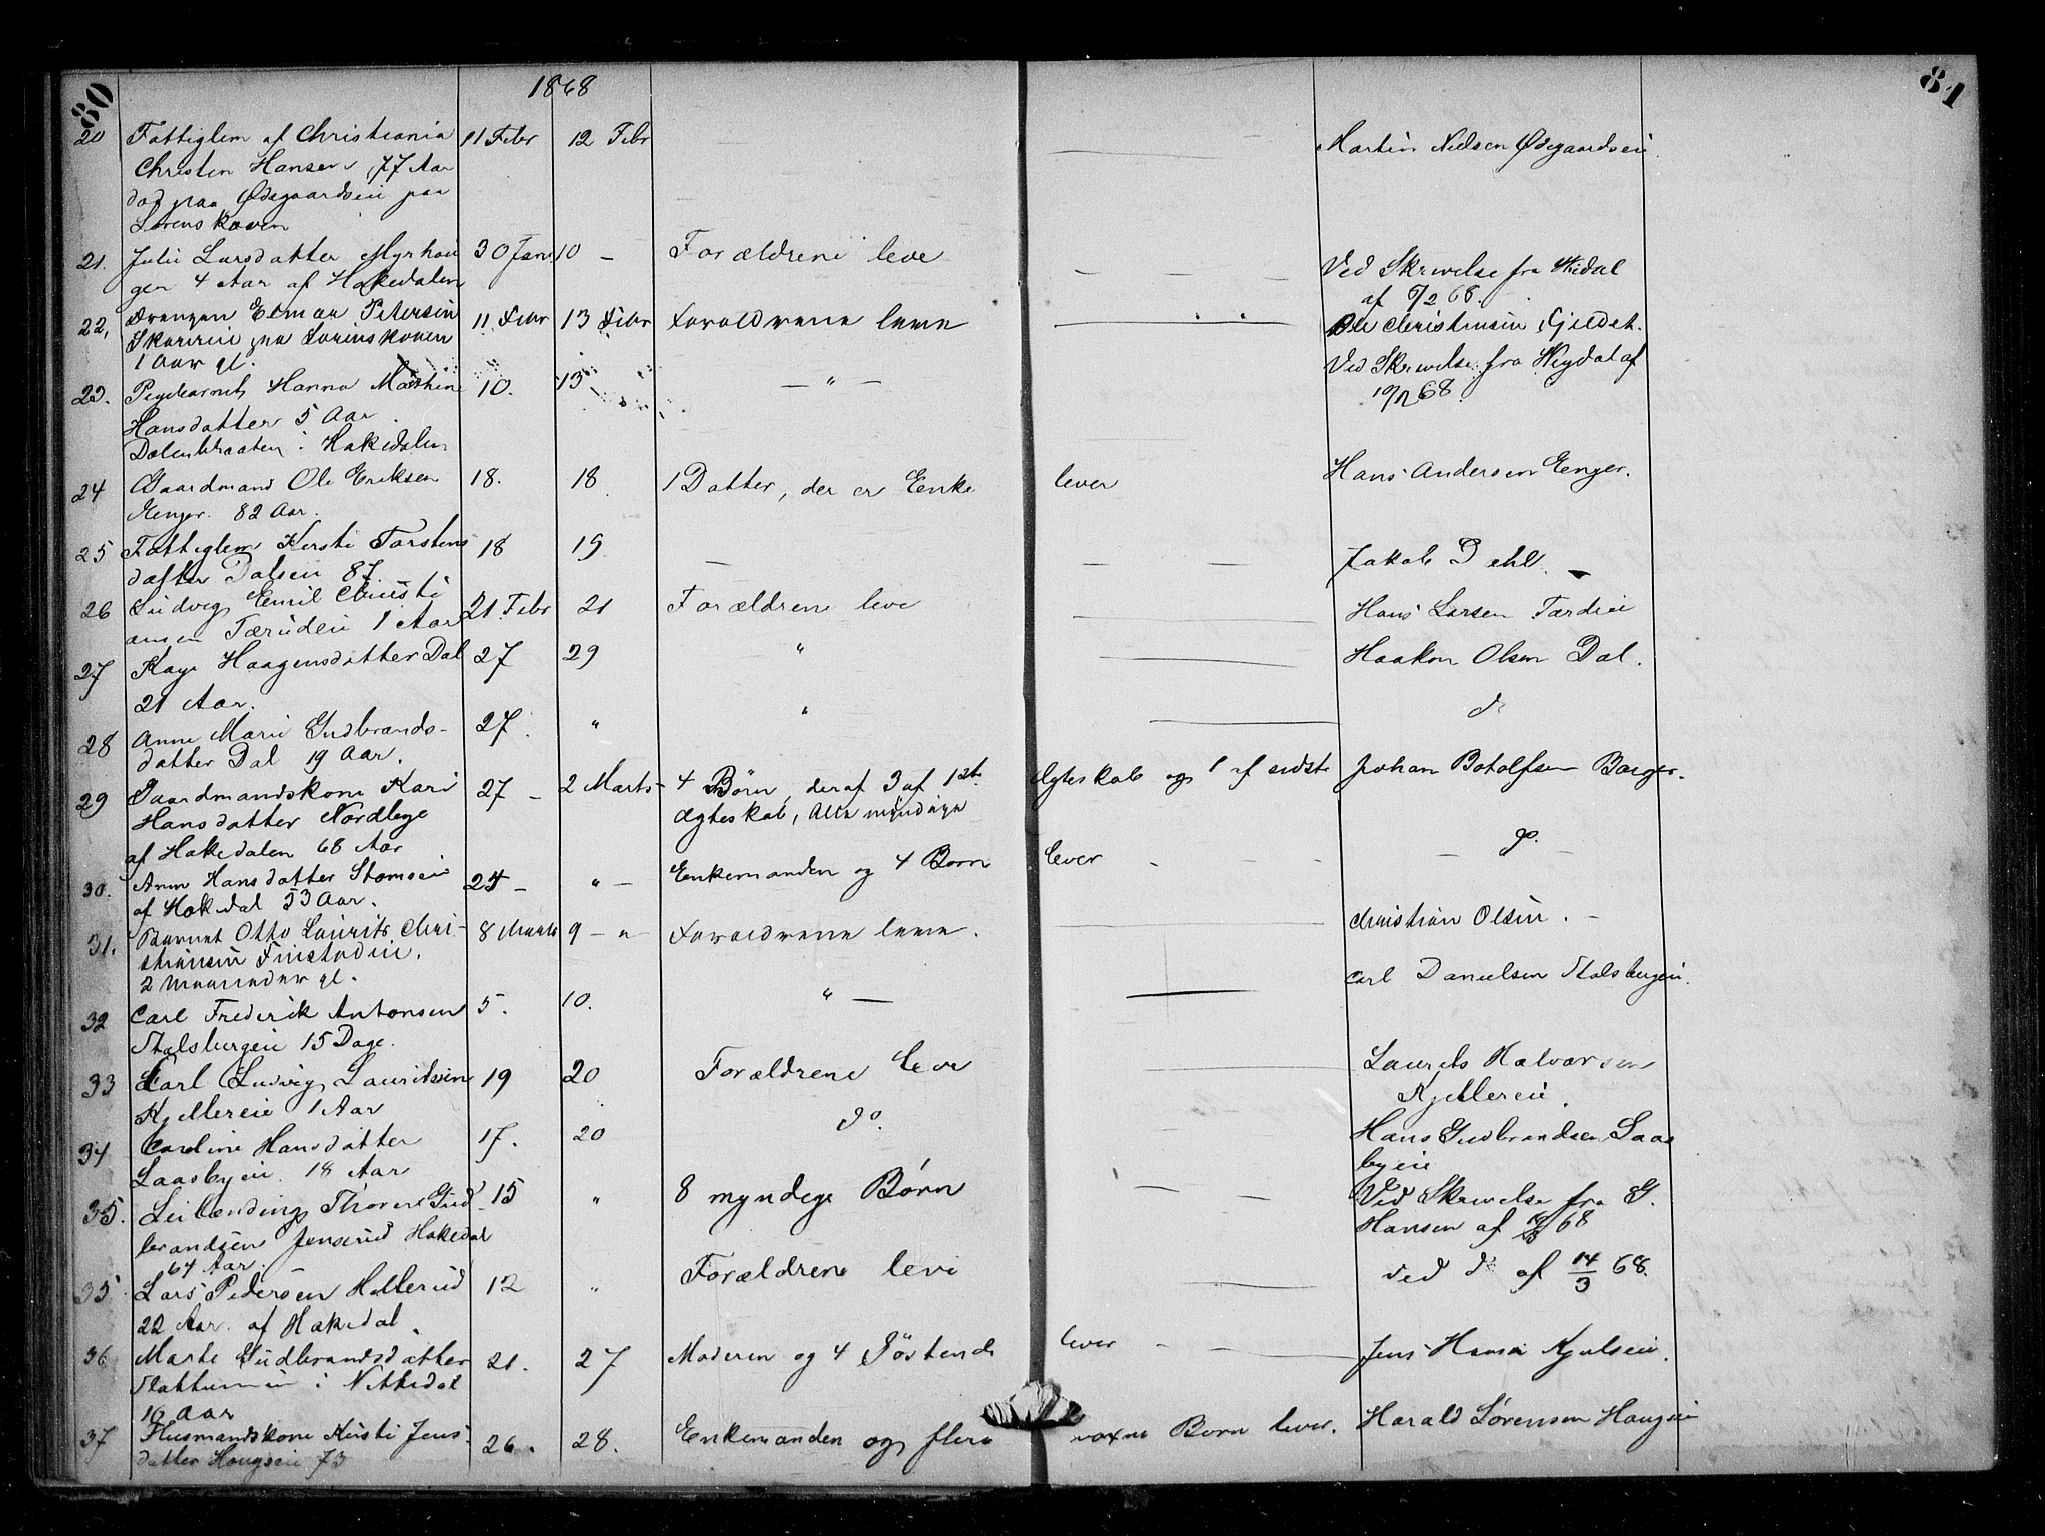 80
1868
81
20 Fattiglem af Christiania 11 Febr 12 Febr — — — Martin Nielsen Ødegaardseie.
Christen Hansen, 77 Aar
død paa Ødegaardseie paa
Lørenskoven
21. Julie Larsdatter Myrhau 30 Jan 10 — Forældrene leve — — — Ved Skrivelse fra
gen 4 Aar af Hakedalen af 6/2 68.
22, Petersen 11 Febr 13 Febr Forældrene leve — Ole Christensen Gjeldst.
Skareie paa Lørenskoven
1 Aar gl. Ved Skrivelse fra
23. Hanna Martine 10. 13 — " — af
Hansdatter 5 Aar 19/2 68.
Dalenbraaten i Hakedalen
24 Gaardmand Ole Eriksen 18. 18 1 Datter, der er Enke lever Hans Andersen Eenger.
Eenger. 82 Aar.
25 Fattiglem Kersti Torstens 18 19 — — — Jakob Dehl.
datter Dalseie 87.
26 Ludvig Emil Christi 21 Febr 21 Forældrene leve — Hans Larsen
ansen Tærudeie 1 Aar
27 Kaye Haagensdatter Dal 27 29 " — Haakon Olsen Dal.
21 Aar.
28 Anne Marie Gudbrands- 27. " " — do
datter Dal 19 Aar.
29 Gaardmandskone Kari 27 — 2 Marts — 4 Børn, deraf 3 af 1ste Ægteskab og 1 af sidste Johan Botolfsen Barger.
Hansdatter Nordbye Ægteskab, Alle myndige
af Hakedalen 68 Aar
30. Anne Hansdatter Stomseie 24 — " — Enkemanden og 4 Børn lever — — — do.
af Hakedal 53 Aar.
31. Barnet Otto Laurits Chri- 8 Marts 9 — " Forældrene leve. — Christian Olsen. —
stiansen Finstadeie.
2 Maaneder gl.
32 Carl Frederik Antonsen 5. 10. " — — Carl Danielsen Stalsbergeie.
Stalsbergeie 15 Dage.
33 Carl Ludvig Lauritsen 19 20 Forældrene leve — Laurits Halvorsen
Kjellereie 1 Aar Kjellereie.
34 Caroline Hansdatter 17. 20 do. — Hans Gudbrandsen Laas
Laasbyeie. 18 Aar byeie
35. Leilænding Thorer Gud 15 " 8 myndige Børn — — Ved Skrivelse fra G.
brandsen Jenserud Hakedal Hansen af 68
64 Aar.
35 Lars Pedersen Hellerud 12 " Forældrene leve — ved do af 14/3 68.
22 Aar. af Hakedal.
36 Marte Gudbrandsdatter 21. 27 Moderen og 4 Søskende lever — Jens Hansen
Slattumeie i Nittedal
16 Aar
37 Husmandskone Kersti Jens 26. 28. Enkemanden og flere voxne Børn lever. Harald Sørensen Haugseie
datter Haugseie 73